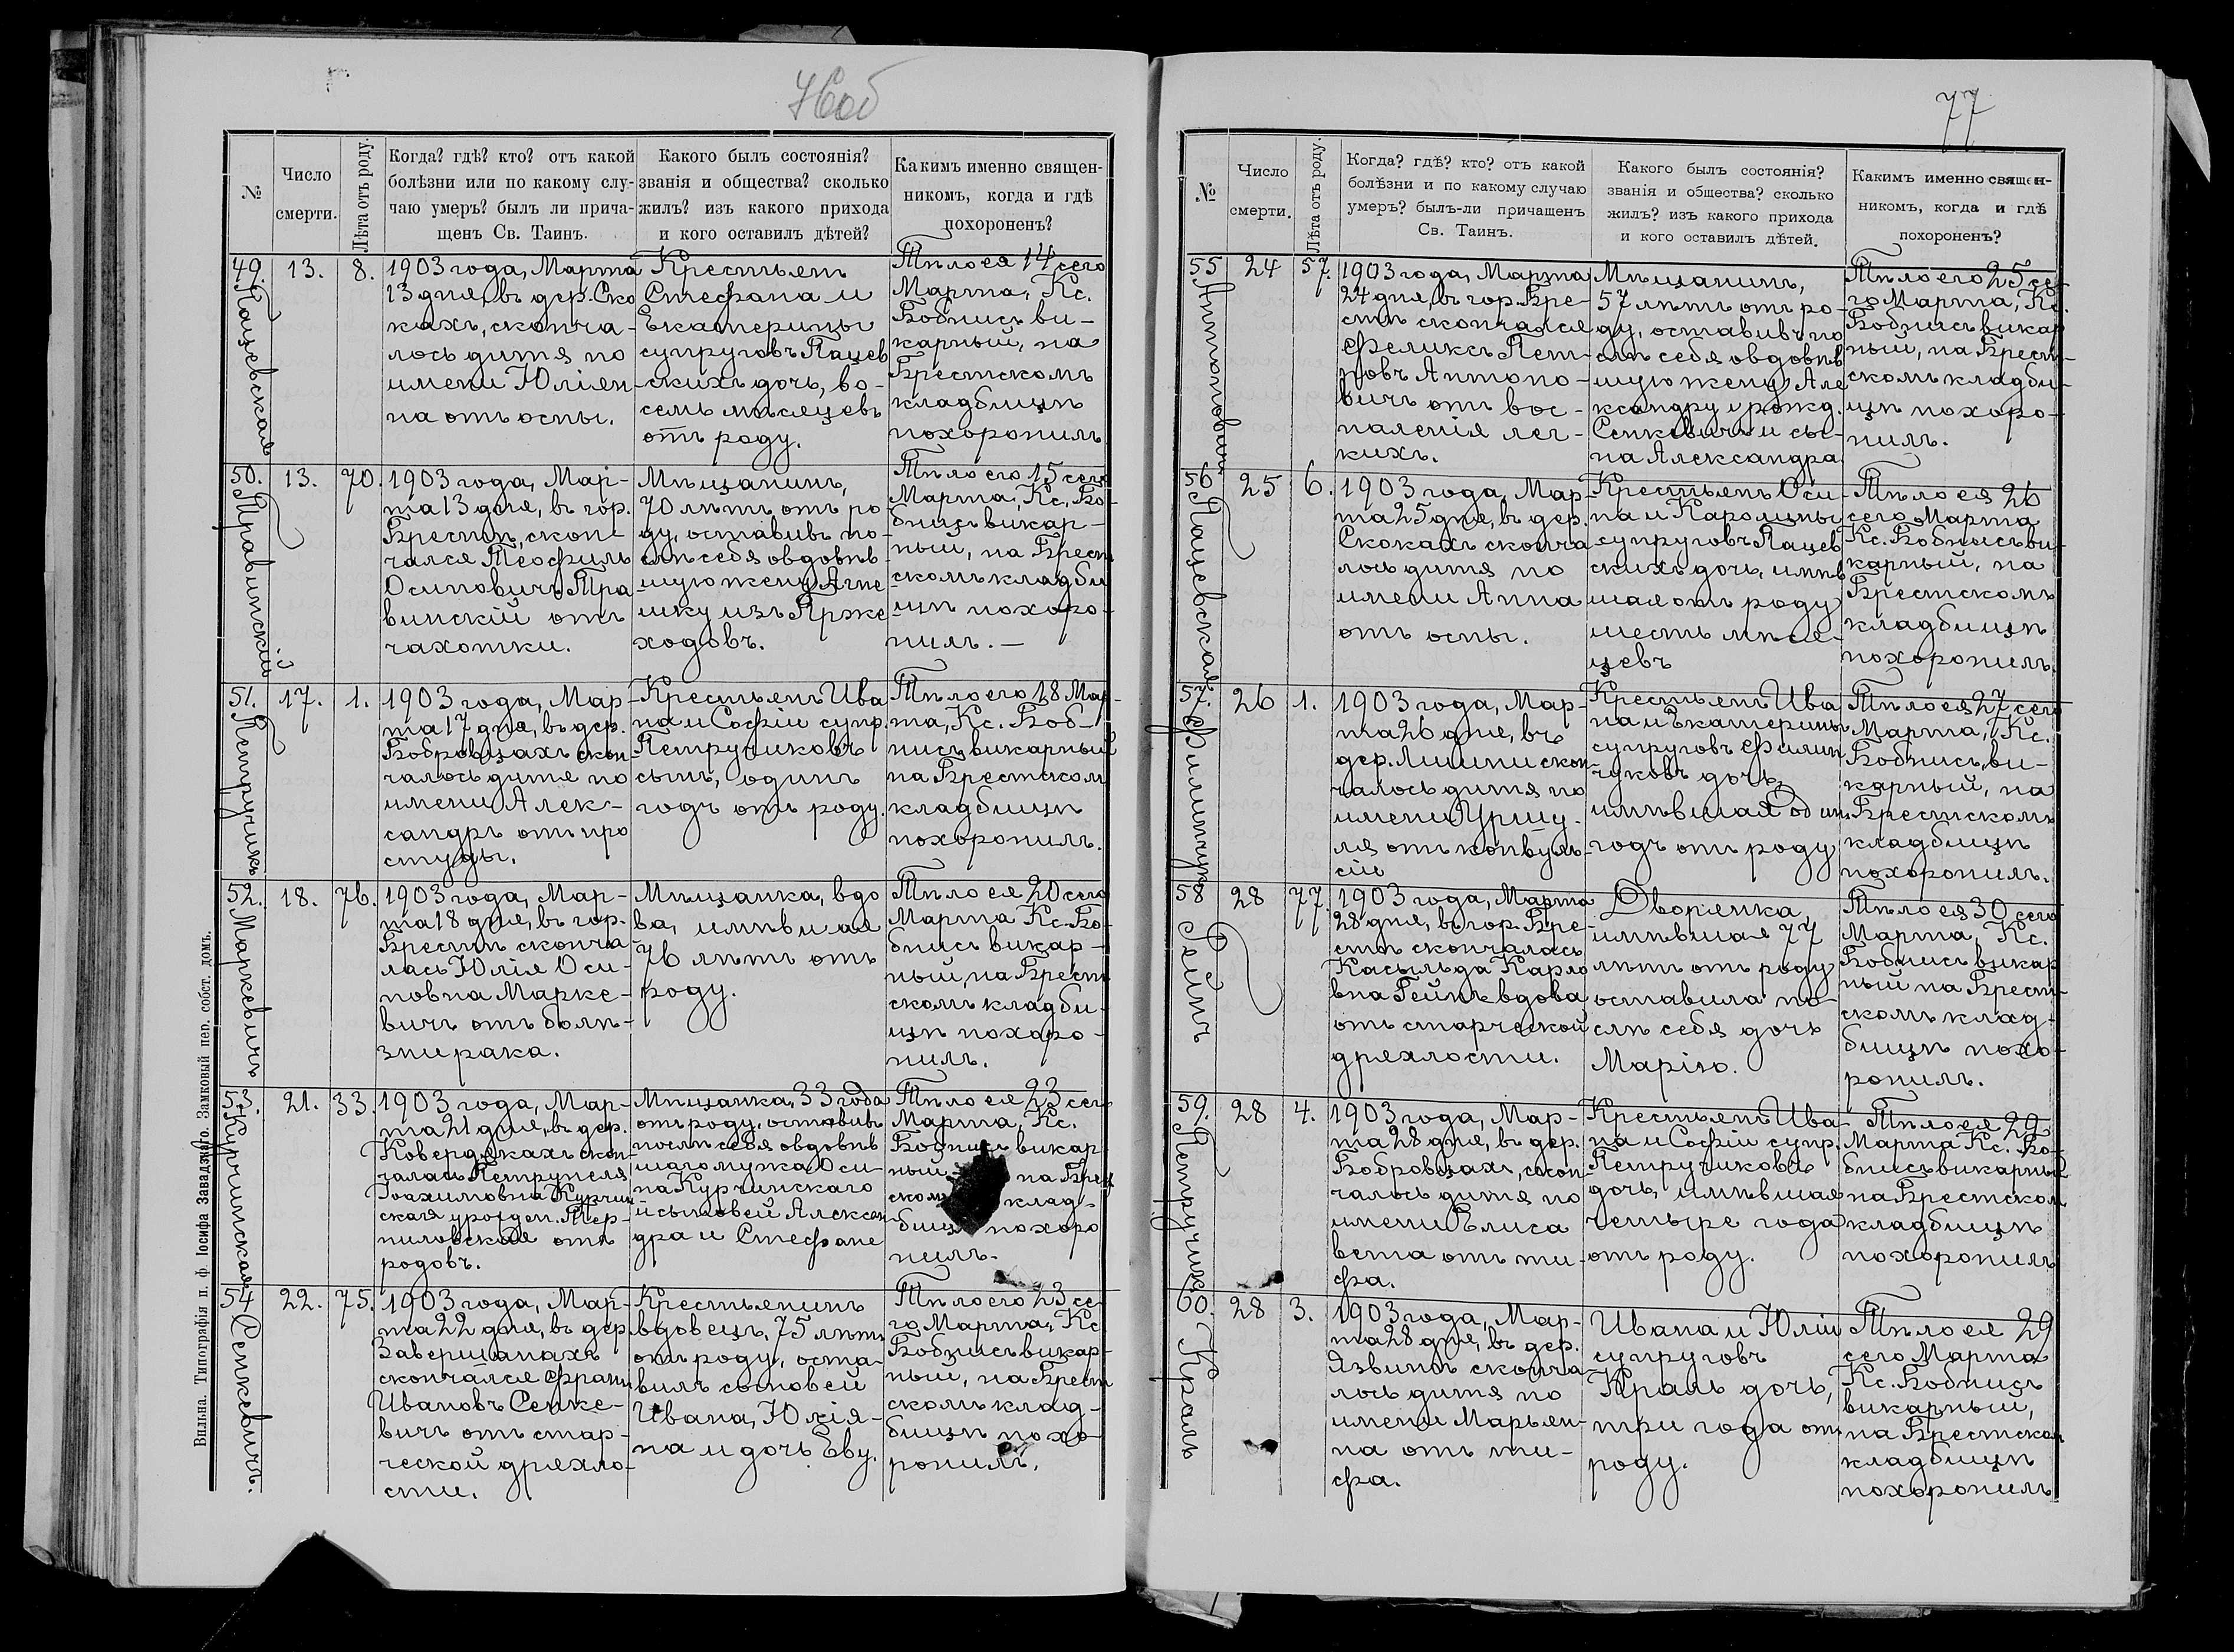 76об
№
Число
смерти.
Лѣта отъ роду.
Когда? гдѣ? кто? отъ какой
болѣзни или по какому слу-
чаю умеръ? былъ ли прича-
щенъ Св. Таинъ.
Какого былъ состоянія?
званія и общества? сколько
жилъ? изъ какого прихода
и кого оставилъ дѣтей?
Какимъ именно священ-
никомъ, когда и гдѣ
похороненъ?
49.
Пацевская
13.
8.
1903 года, Марта
13 дня, въ дер. Ско
кахъ, сконча-
лось дитя по
имени Юліан-
на отъ оспы.
Крестьянъ
Стефана и
Екатерины
супруговъ Пацев
скихъ дочь, во-
семь мѣсяцевъ
отъ роду.
Тѣло ея 14 сего
Марта, Кс.
Бобнисъ ви-
карный, на
Брестскомъ
кладбищѣ
похоронилъ.
50.
Травинскій
13.
70.
1903 года, Мар-
та 13 дня, въ гор.
Брестѣ, скон-
чался Теофилъ
Осиповичъ Тра
винскій отъ
чахотки.
Мѣщанинъ,
70 лѣтъ отъ ро
ду, оставивъ по-
слѣ себя овдовѣв-
шую жену Агне
шку изъ Прже
ходовъ.
Тѣло его 15 сего
Марта, Кс. Бо-
бнисъ викар-
ный, на Брест
скомъ кладби
щѣ похоро-
нилъ. —
51.
Петручикъ
17.
1.
1903 года, Мар-
та 17 дня, въ дер.
Бобровцахъ скон-
чалось дитя по
имени Алек-
сандръ отъ про
студы.
Крестьянъ Ива
на и Софіи супр.
Петручиковъ
сынъ, одинъ
годъ отъ роду.
Тѣло его 18 Мар-
та, Кс. Боб-
нисъ викарный
на Брестском
кладбищѣ
похоронилъ.
52.
Маркевичъ
18.
76.
1903 года, Мар-
та 18 дня, въ гор.
Брестѣ сконча
лась Юлія Оси-
повна Марке-
вичъ отъ болѣ-
зни рака.
Мѣщанка, вдо
ва, имѣвшая
76 лѣтъ отъ
роду.
Тѣло ея 20 сего
Марта Кс. Бо-
бнисъ викар-
ный, на Брест
скомъ кладби-
щѣ похоро-
нилъ.
53.
Курчинская
21.
33.
1903 года, Мар-
та 21 дня, въ дер.
Ковердякахъ скон-
чалась Петрунеля
Іоахимовна Курчин
ская урожден.
отъ
родовъ.
Мѣщанка, 33 года
отъ роду, оставивъ
послѣ себя овдовѣв
шаго мужа Оси-
па Курчинскаго
и сыновей Алексан
дра и Стефана
Тѣло ея 23 сего
Марта, Кс.
Бобнисъ викар
ный на Брес
ском клад-
бищ похоро
нилъ.
54
Сенкевичъ.
22.
75.
1903 года, Мар-
та 22 дня, въ дер.
скончался Франц
Ивановъ Сенке-
вичъ отъ стар-
ческой дряхло-
сти.
Крестьянинъ
вдовецъ, 75 лѣтъ
отъ роду, оста-
вилъ сыновей
Ивана, Юлія-
на и дочь Еву.
Тѣло его 23 се-
го Марта, Кс
Бобнисъ викар-
ный, на Брест
скомъ клад-
бищѣ похо-
ронилъ.
Вильна. Типографія п. ф Іосифа Завадзкаго. Замковый пер. собст. домъ.
77
№
Число
смерти.
Лѣта отъ роду.
Когда? гдѣ? кто? отъ какой
болѣзни и по какому случаю
умеръ? былъ-ли причащенъ
Св. Таинъ.
Какого былъ состоянія?
званія и общества? сколько
жилъ? изъ какого прихода
и кого оставилъ дѣтей.
Какимъ именно священ-
никомъ, когда и гдѣ
похороненъ?
55
Антоновичъ
24
57.
1903 года, Марта
24 дня, въ гор. Бре-
стѣ скончался
Феликсъ Пет-
ровъ Антоно-
вичъ отъ вос-
паленія лег-
кихъ.
Мѣщанинъ,
57 лѣтъ отъ ро-
ду, оставивъ по
слѣ себя овдовѣв
шую жену Але
ксандру урожд.
Сенкевичъ и сы-
на Александра
Тѣло его 25 се-
го Марта, Кс.
Бобнисъ викар
ный, на Брест-
скомъ кладби-
щѣ похоро-
нилъ.
56
Пацевская
25
6.
1903 года, Мар-
та 25 дня, въ дер.
Скокахъ сконча
лось дитя по
имени Анна
отъ оспы.
Крестьянъ Оси-
па и Каролины
супруговъ Пацев
скихъ дочь, имѣв
шая отъ роду
шесть мѣся-
цевъ
Тѣло ея 26
сего Марта
Кс. Бобнисъ ви-
карный, на
Брестскомъ
кладбищѣ
похоронилъ.
57.
Филипчукъ
26
1.
1903 года, Мар-
та 26 дня, въ
дер. скон
чалось дитя по
имени Уршу-
ля отъ конвуль-
сіи
Крестьянъ Ива
на и Екатерины
супруговъ Филип
чуковъ дочь,
имѣвшая одинъ
годъ отъ роду
Тѣло ея 27 сего
Марта, Кс.
Бобнисъ, ви-
карный, на
Брестскомъ
кладбищѣ
похоронилъ.
58
Гейнъ
28
77.
1903 года, Марта
28 дня, въ гор. Бре-
стѣ скончалась
Касыльда Карло
вна Гейнъ вдова
отъ старческой
дряхлости.
Дворянка,
имѣвшая 77
лѣтъ отъ роду
оставила по-
слѣ себя дочь
Марію.
Тѣло ея 30 сего
Марта, Кс.
Бобнисъ викар
ный на Брест-
скомъ клад-
бищѣ похо-
ронилъ.
59.
Петручикъ
28
4.
1903 года, Мар-
та 28 дня, въ дер.
Бобровцахъ, скон-
чалось дитя по
имени Елиса
вета отъ ти-
фа.
Крестьянъ Ива-
на и Софіи супр.
Петручиковъ
дочь, имѣвшая
четыре года
отъ роду.
Тѣло ея 29
Марта Кс. Бо-
бнисъ викарный
на Брестском
кладбищѣ
похоронилъ
60.
Краль
28
3.
1903 года, Мар-
та 28 дня, въ дер.
Язвинѣ сконча
лось дитя по
имени Марьян-
на отъ ти-
фа.
Ивана и Юліи
супруговъ
Краль дочь,
три года отъ
роду.
Тѣло ея 29
сего Марта
Кс. Бобнисъ
викарный,
на Брестском
кладбищѣ
похоронилъ